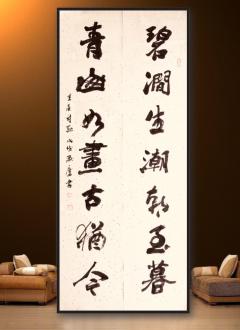 碧澗生潮朝至暮
青山如畫古猶今